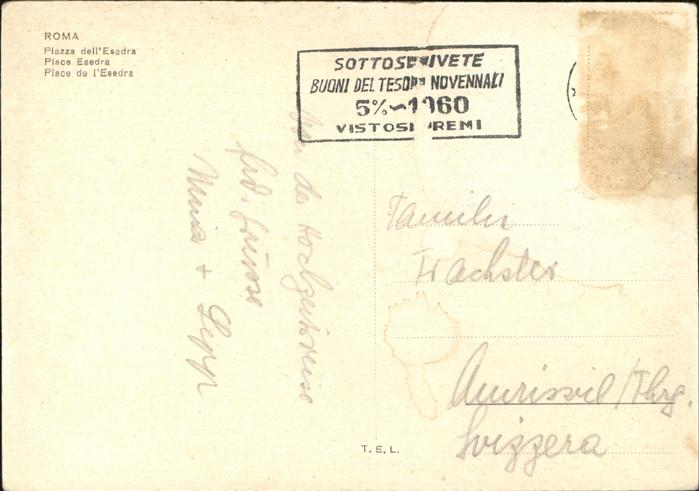 ROMA
Piazza dell'Esedra
Place Esedra
Place de l'Esedra
SOTTOSCRIVETE
BUONI DEL TESORO NOVENNALI
5% 1960
VISTOSI PREMI
Von der Hochzeitsreise
frdl. Grüsse
+ Sepp
Familie
Trachsler
Amriswil/Thrg.
Svizzera
T. E. L.